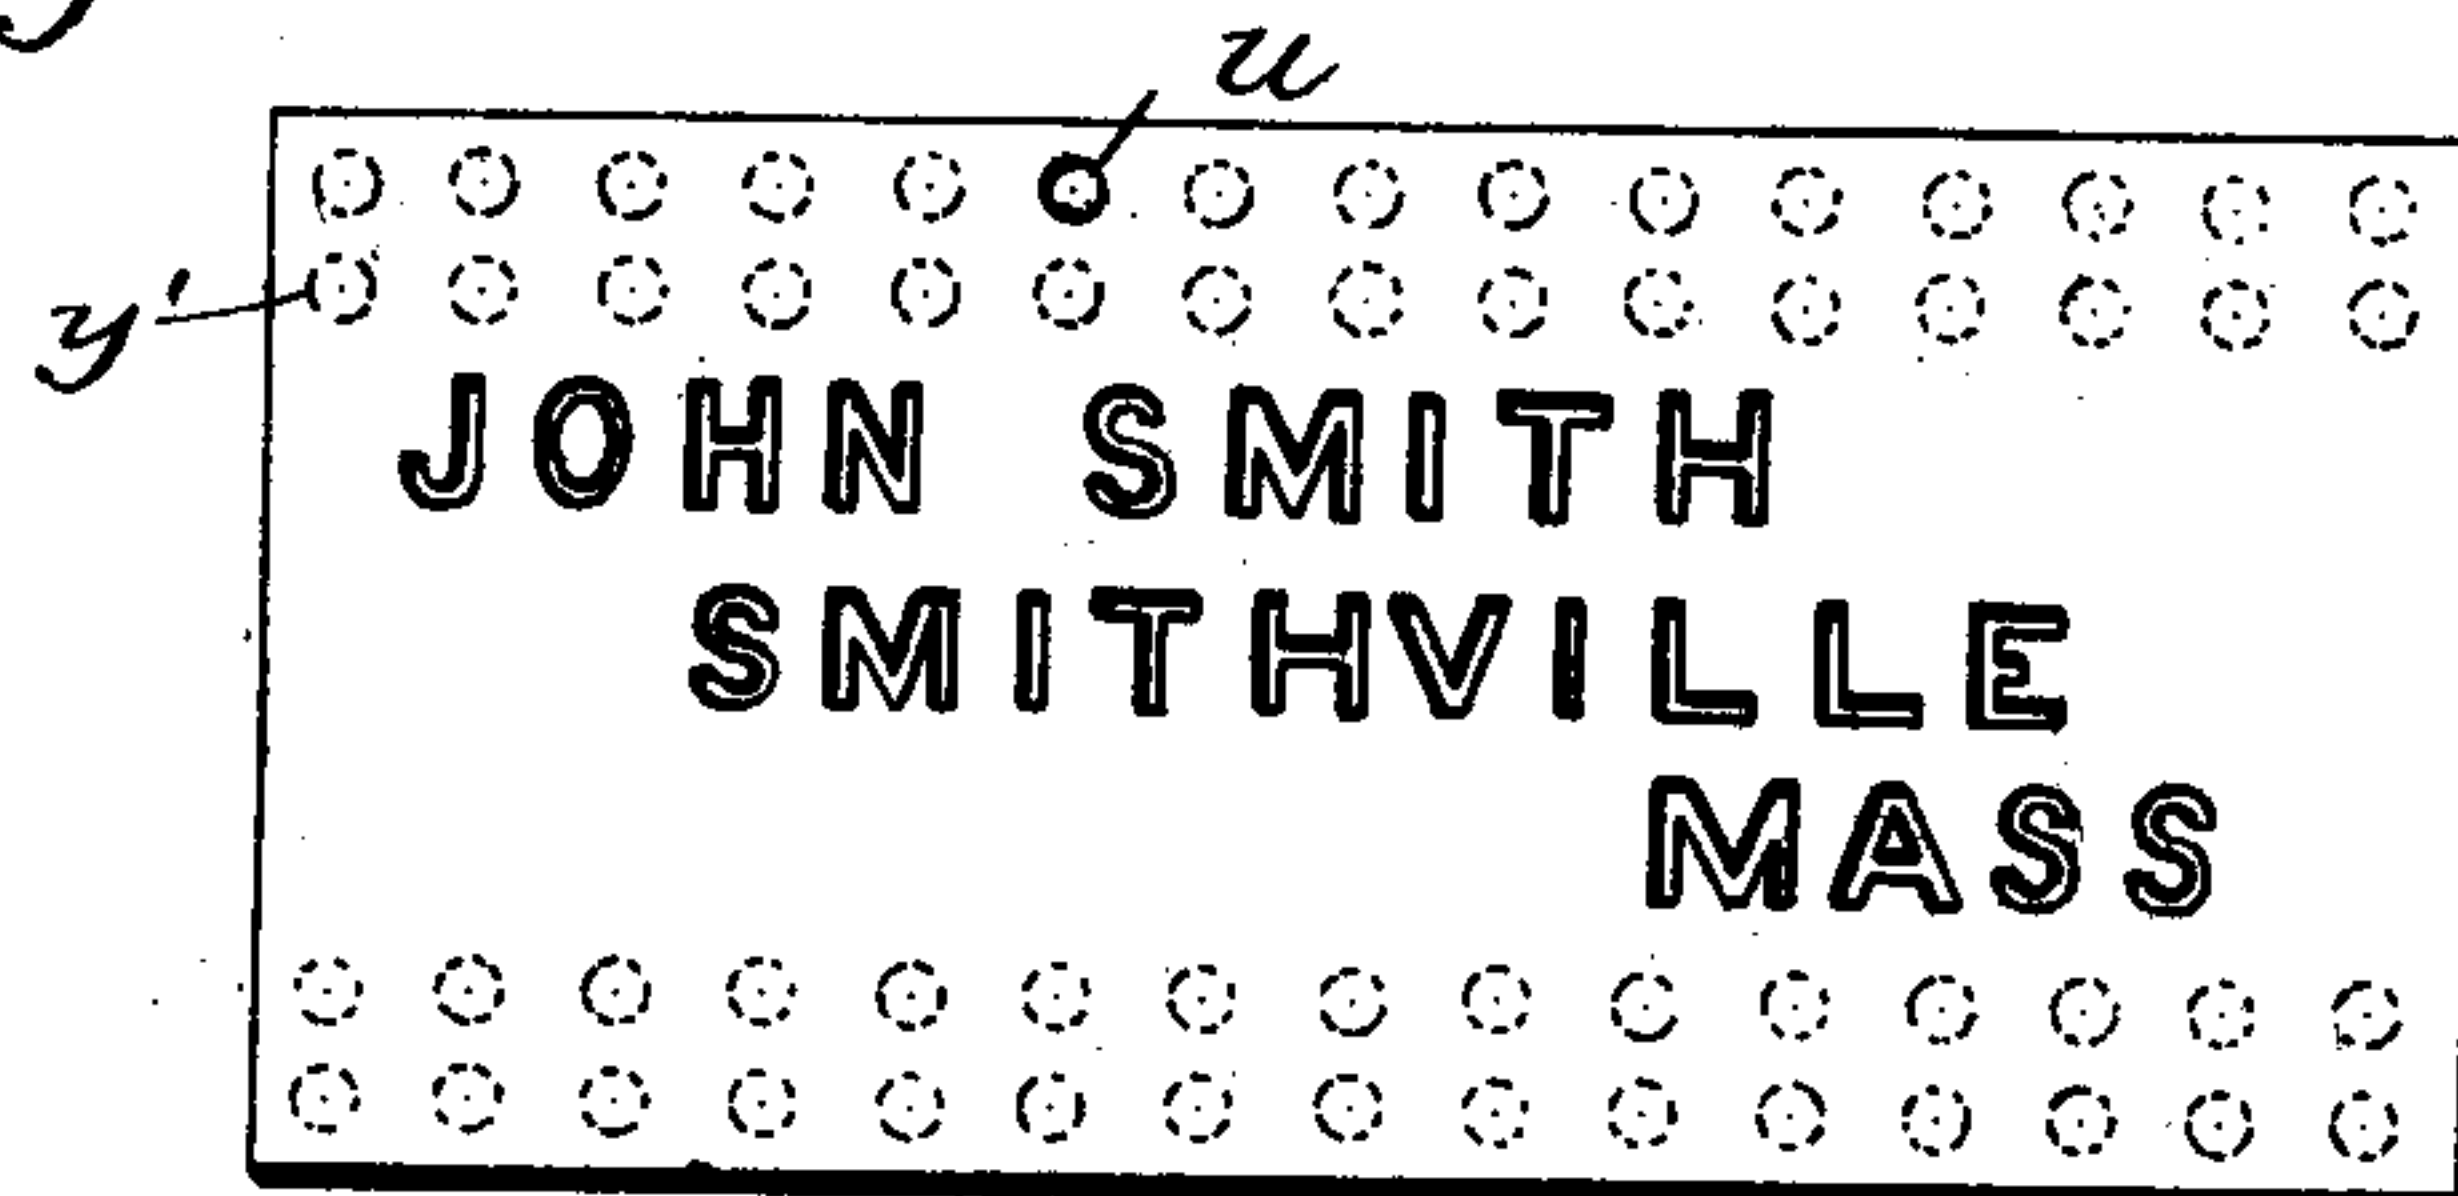 u
y'
JOHN SMITH
SMITHVILLE
MASS